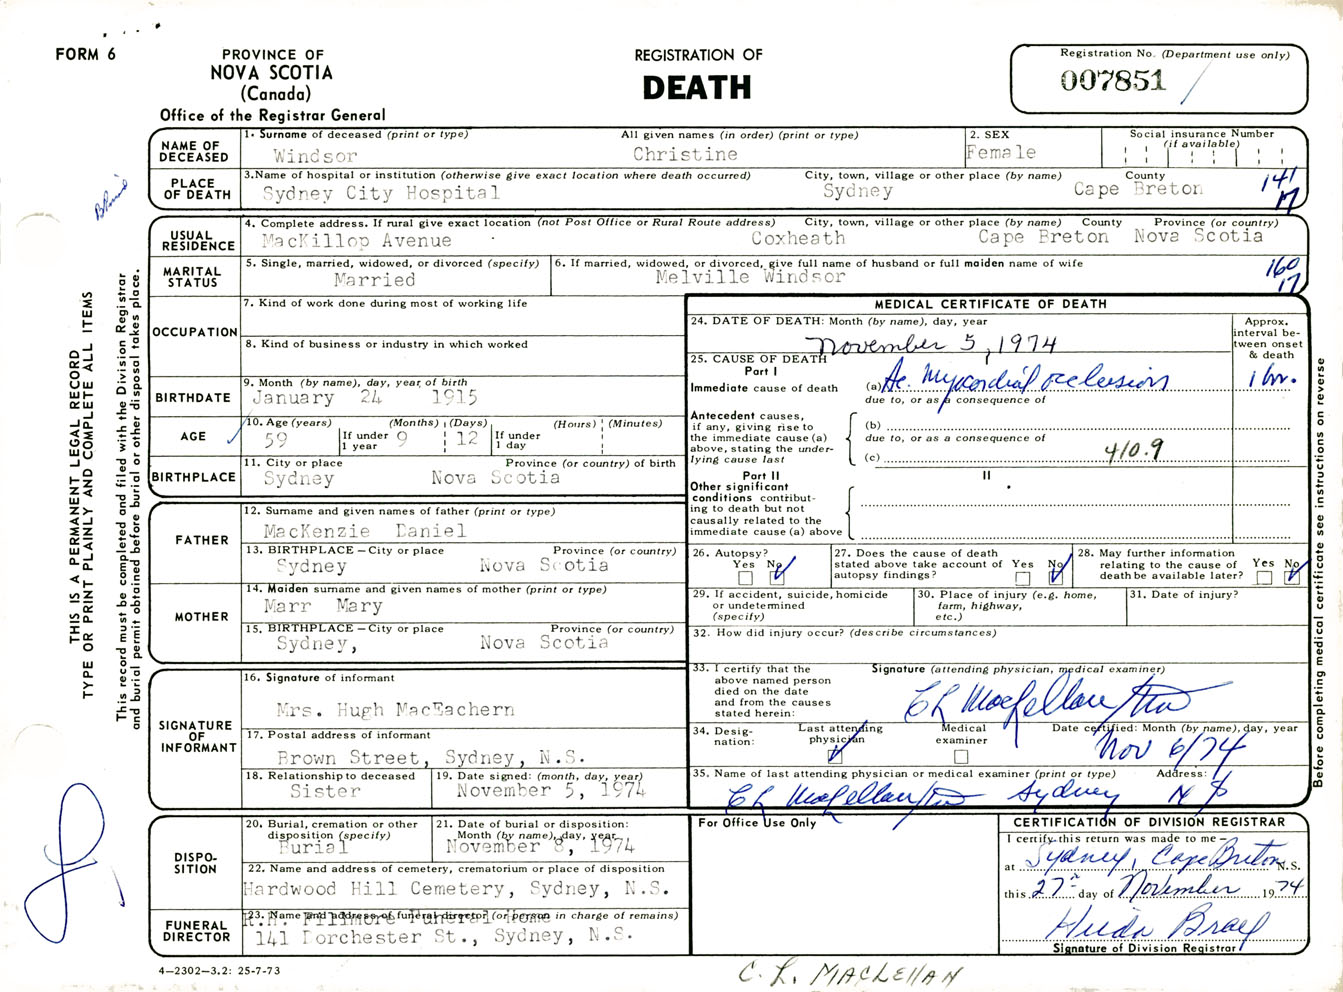 FORM 6
PROVINCE OF
NOVA SCOTIA
(Canada)
Office of the Registrar General
REGISTRATION OF
DEATH
Registration No. (Department use only)
007851
THIS IS A PERMANENT LEGAL RECORD
TYPE OR PRINT PLAINLY AND COMPLETE ALL ITEMS
This record must be completed and filed with the Division Registrar
and burial permit obtained before burial or other disposal takes place.
NAME OF DECEASED
1. Surname of deceased (print or type) All given names (in order) (print or type)
Windsor Christine
2. SEX
Female
Social insurance Number
(if available)
PLACE OF DEATH
3.Name of hospital or institution (otherwise give exact location where death occurred) City, town, village or other place (by name) County
Sydney City Hospital Sydney Cape Breton
141
17
USUAL RESIDENCE
4. Complete address. If rural give exact location (not Post Office or Rural Route address) City, town, village or other place (by name) County Province (or country)
MacKillop Avenue Coxheath Cape Breton Nova Scotia
MARITAL STATUS
5. Single, married, widowed, or divorced (specify)
Married
6. If married, widowed, or divorced, give full name of husband or full maiden name of wife
Melville Windsor
160
17
OCCUPATION
7. Kind of work done during most of working life
8. Kind of business or industry in which worked
BIRTHDATE
9. Month (by name), day, year, of birth
January 24 1915
AGE
10. Age (years) (Months) (Days) (Hours) (Minutes)
59 If under 1 year 9 12 If under 1 day
BIRTHPLACE
11. City or place Province (or country) of birth
Sydney Nova Scotia
FATHER
12. Surname and given names of father (print or type)
MacKenzie Daniel
13. BIRTHPLACE – City or place Province (or country)
Sydney Nova Scotia
MOTHER
14. Maiden surname and given names of mother (print or type)
Marr Mary
15. BIRTHPLACE – City or place Province (or country)
Sydney, Nova Scotia
SIGNATURE OF INFORMANT
16. Signature of informant
Mrs. Hugh MacEachern
17. Postal address of informant
Brown Street, Sydney, N.S.
18. Relationship to deceased
Sister
19. Date signed: (month, day, year)
November 5, 1974
DISPO-
SITION
20. Burial, cremation or other
disposition (specify)
Burial
21. Date of burial or disposition:
Month (by name), day, year
November 8, 1974
22. Name and address of cemetery, crematorium or place of disposition
Hardwood Hill Cemetery, Sydney, N.S.
FUNERAL DIRECTOR
23. Name and address of funeral director (or person in charge of remains)
Fillmore Funeral Home
141 Dorchester St., Sydney, N.S.
4–2302–3.2: 25-7-73
MEDICAL CERTIFICATE OF DEATH
24. DATE OF DEATH: Month (by name), day, year
November 5, 1974
Approx. interval be-
tween onset
& death
25. CAUSE OF DEATH
Part I
Immediate cause of death (a) Ac. Myocardial occlusion 1 hr.
due to, or as a consequence of
Antecedent causes,
if any, giving rise to
the immediate cause (a)
above, stating the under-
lying cause last
(b)
due to, or as a consequence of
(c) 410.9
Part II
II
Other significant
conditions contribut-
ing to death but not
causally related to the
immediate cause (a) above
26. Autopsy?
Yes No
27. Does the cause of death
stated above take account of
autopsy findings?
Yes No
28. May further information
relating to the cause of
death be available later?
Yes No
29. If accident, suicide, homicide
or undetermined
(specify)
30. Place of injury (e.g. home,
farm, highway,
etc.)
31. Date of injury?
32. How did injury occur? (describe circumstances)
33. I certify that the
above named person
died on the date
and from the causes
stated herein:
Signature (attending physician, medical examiner)
C L MacLellan
34. Desig-
nation:
Last attending
physician
Medical
examiner
Date certified: Month (by name), day, year
Nov 6/74
35. Name of last attending physician or medical examiner (print or type) Address:
C L MacLellan Sydney N S
Before completing medical certificate see instructions on reverse
For Office Use Only
CERTIFICATION OF DIVISION REGISTRAR
I certify this return was made to me –
at Sydney, Cape Breton N.S.
this 27th day of November 1974
Signature of Division Registrar
C. L. MACLELLAN